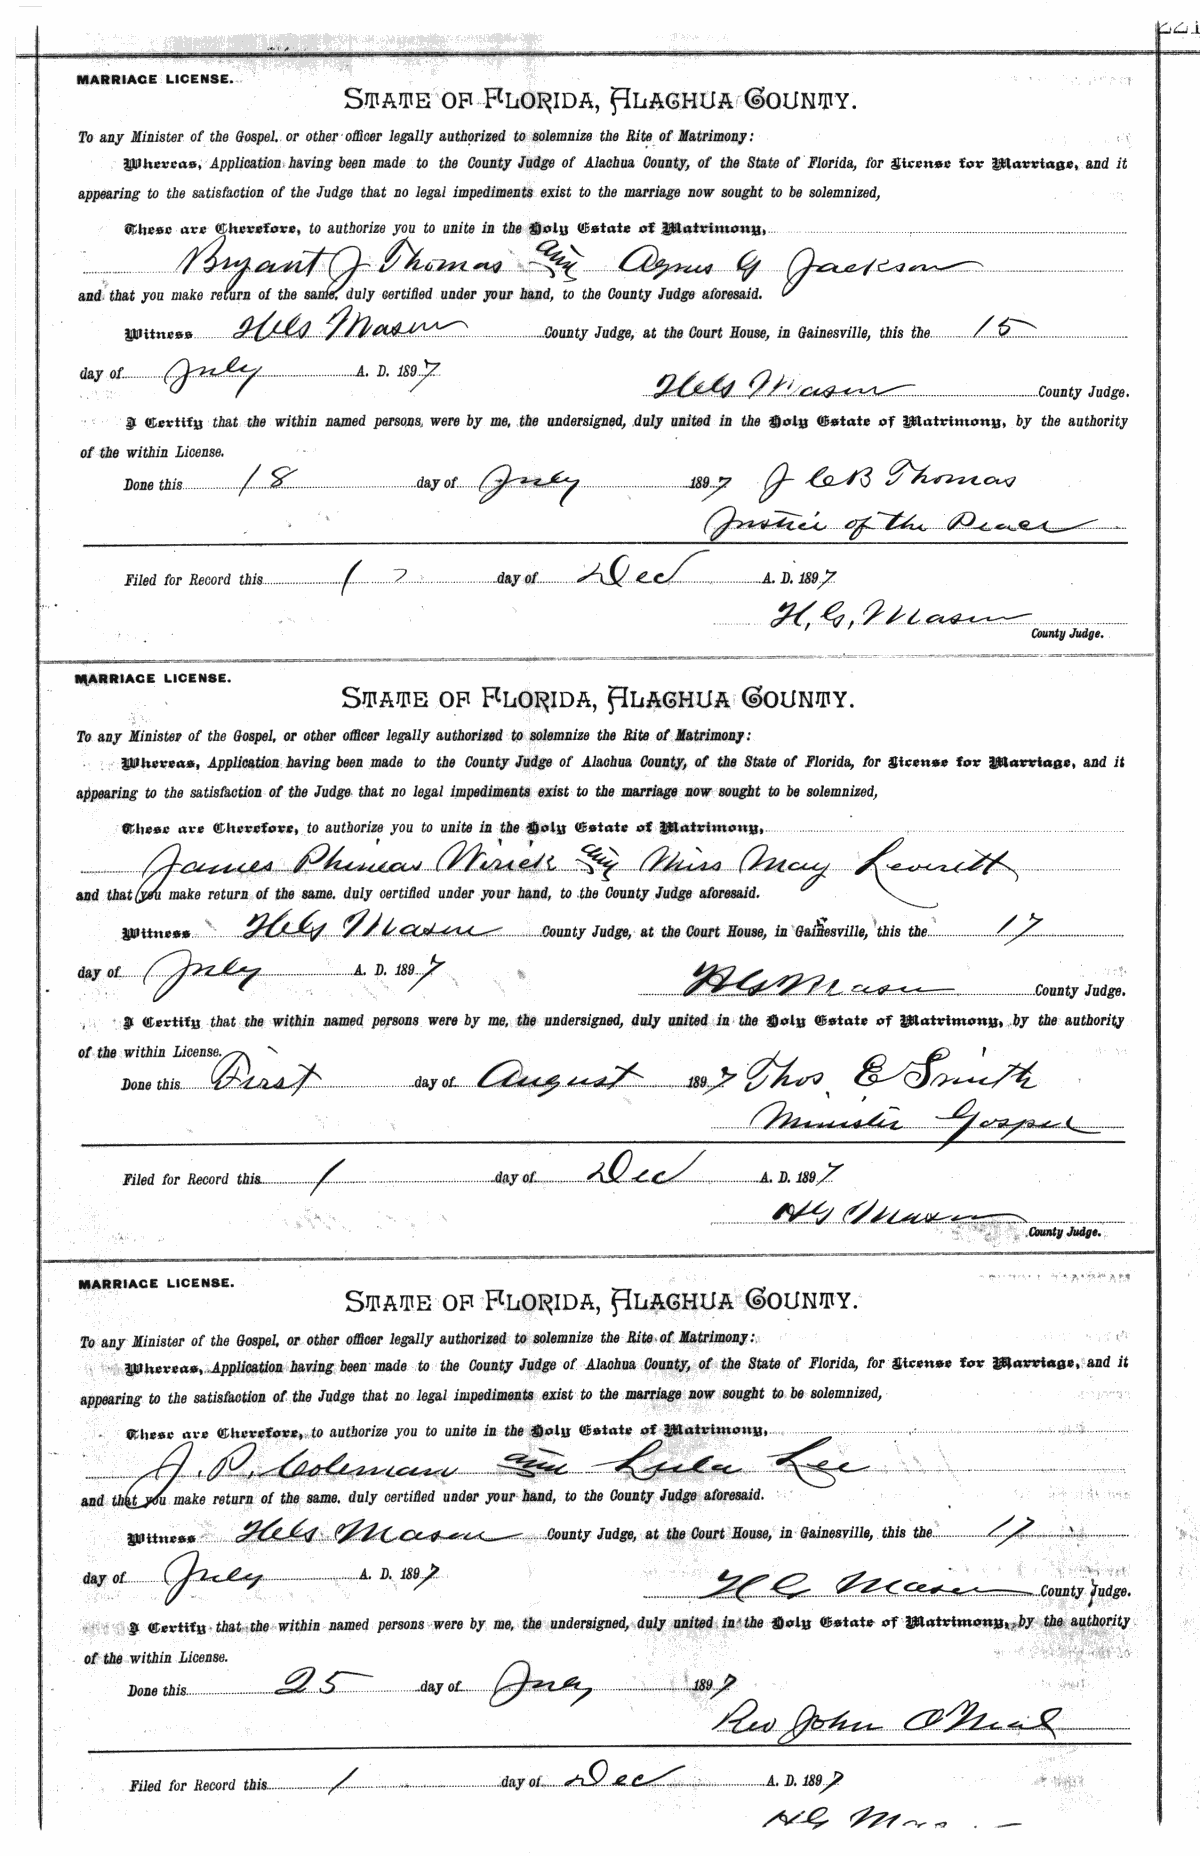 MARRIAGE LICENSE.
STATE OF FLORIDA, ALACHUA COUNTY.
To any Minister of the Gospel, or other officer legally authorized to solemnize the Rite of Matrimony:
Whereas, Application having been made to the County Judge of Alachua County, of the State of Florida, for License for Marriage, and it
appearing to the satisfaction of the Judge that no legal impediments exist to the marriage now sought to be solemnized,
These are Therefore, to authorize you to unite in the Holy Estate of Matrimony,
Bryant J Thomas and Agnes G Jackson
and that you make return of the same, duly certified under your hand, to the County Judge aforesaid.
Witness H G Mason County Judge, at the Court House, in Gainesville, this the 15
day of July A. D. 1897
H G Mason County Judge.
I Certify that the within named persons were by me, the undersigned, duly united in the Holy Estate of Matrimony, by the authority
of the within License.
Done this 18 day of July 1897 J C B Thomas
Justice of the Peace
Filed for Record this 1 day of Dec A. D. 1897
H, G, Mason
County Judge.
MARRIAGE LICENSE.
STATE OF FLORIDA, ALACHUA COUNTY.
To any Minister of the Gospel, or other officer legally authorized to solemnize the Rite of Matrimony:
Whereas, Application having been made to the County Judge of Alachua County, of the State of Florida, for License for Marriage, and it
appearing to the satisfaction of the Judge that no legal impediments exist to the marriage now sought to be solemnized,
These are Therefore, to authorize you to unite in the Holy Estate of Matrimony,
James Phineas Wirick and Miss May Leverett
and that you make return of the same, duly certified under your hand, to the County Judge aforesaid.
Witness H G Mason County Judge, at the Court House, in Gainesville, this the 17
day of July A. D. 1897
H G Mason County Judge.
I Certify that the within named persons were by me, the undersigned, duly united in the Holy Estate of Matrimony, by the authority
of the within License.
Done this First day of August 1897 Thos E Smith
Minister Gospel
Filed for Record this 1 day of Dec A. D. 1897
H G Mason
County Judge.
MARRIAGE LICENSE.
STATE OF FLORIDA, ALACHUA COUNTY.
To any Minister of the Gospel, or other officer legally authorized to solemnize the Rite of Matrimony:
Whereas, Application having been made to the County Judge of Alachua County, of the State of Florida, for License for Marriage, and it
appearing to the satisfaction of the Judge that no legal impediments exist to the marriage now sought to be solemnized,
These are Therefore, to authorize you to unite in the Holy Estate of Matrimony,
J. P. Coleman and Lula Lee
and that you make return of the same, duly certified under your hand, to the County Judge aforesaid.
Witness H G Mason County Judge, at the Court House, in Gainesville, this the 17
day of July A. D. 1897
H G Mason County Judge.
I Certify that the within named persons were by me, the undersigned, duly united in the Holy Estate of Matrimony, by the authority
of the within License.
Done this 25 day of July 1897
Rev John O'Neal
Filed for Record this 1 day of Dec A. D. 1897
H G